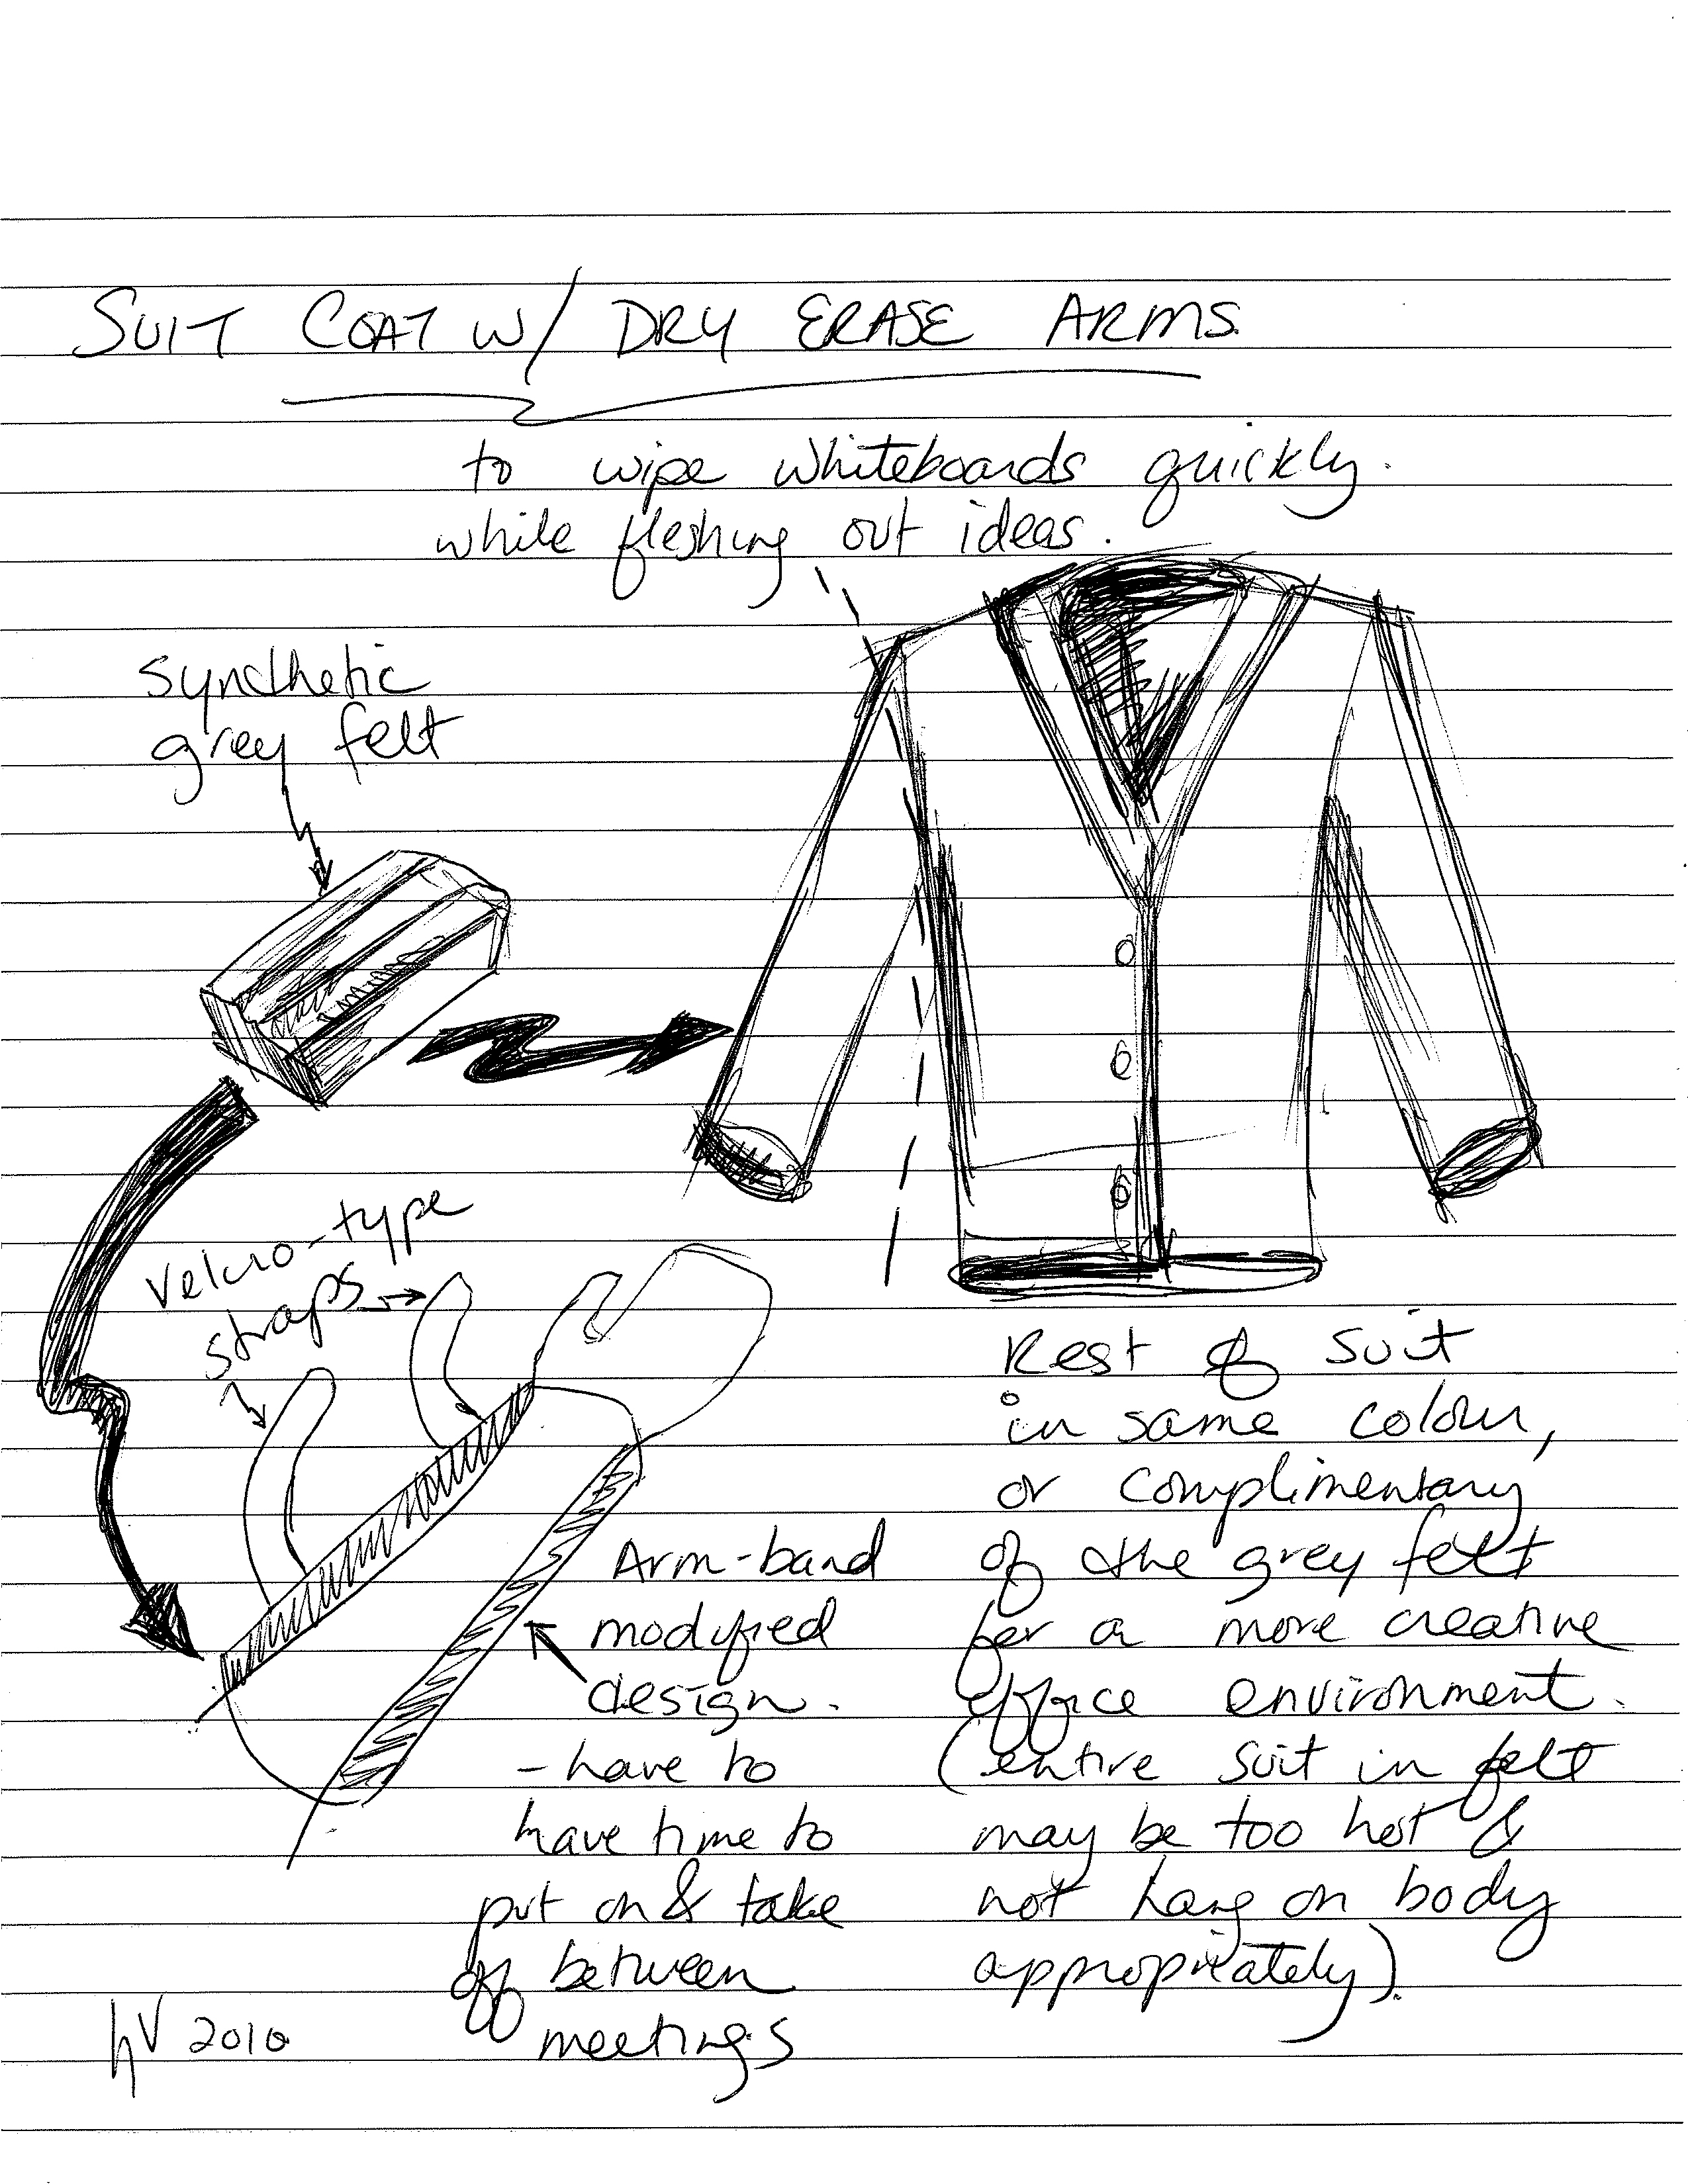 SUIT COAT W/ DRY ERASE ARMS.
to wipe whiteboards quickly.
while fleshing out ideas.
synthetic
grey felt
Velcro-type
straps
Arm-band
modified
design.
- have to
have time to
put on & take
off between
meetings
Rest of suit
in same colour,
or complimentary
of the grey felt
for a more creative
office environment.
(entire suit in felt
may be too hot &
not hang on body
appropriately).
hV 2010